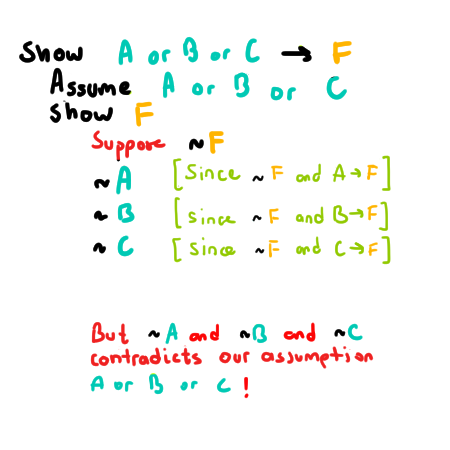 Show A or B or C → F
Assume A or B or C
show F
Suppose ~F
~A [Since ~F and A→F]
~B [since ~F and B→F]
~C [since ~F and C→F]
But ~A and ~B and ~C
contradicts our assumption
A or B or C !